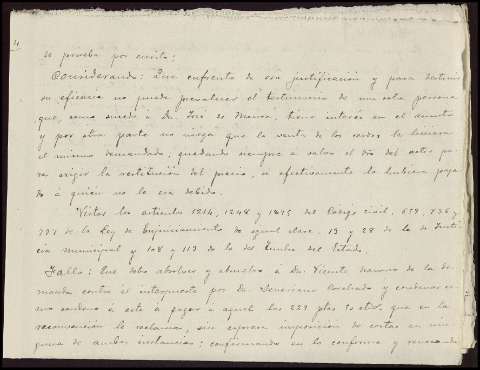 4
de prueba por escrito;
Considerando: Que enfrente de esa justificación y para destruir
su eficacia no puede prevalecer el testimonio de una sola persona
que, como sucede a Dn. José de Marco, tiene interés en el asunto
y por otra parte no niega que la venta de los cerdos la hiciera
el mismo demandado, quedando siempre á salvo el dro del actor pa-
ra exigir la restitución del precio, si efectivamente lo hubiera paga-
do á quien no le era debido.
Vistos los artículos 1214, 1248 y 1895 del Código civil, 659, 736 y
de la Ley de Enjuiciamiento de igual clase, 19 y 28 de la de Justi-
cia municipal y 108 y 119 de la del Timbre del Estado.
Fallo: Que debo absolver y absuelvo á Dn. Vicente Navarro de la de-
manda contra él interpuesta por Dn. Severiano y condenar co-
mo condeno á este á pagar á aquel las 229 ptas 50 cts. que en la
reconvención le reclama, sin expresa imposición de costas en nin-
guna de ambas instancias; confirmando en lo conforme y revocando